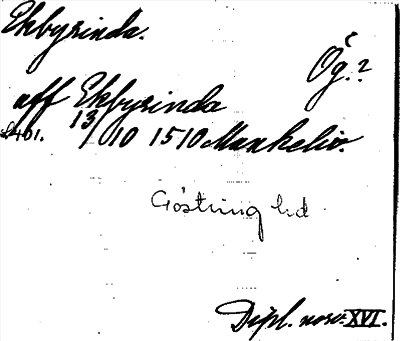 Ekbyrinda.
Ög.?
aff Ekbyrinda
S. 401. 13/10 1510 Munkeliv.
Göstring hd
Dipl. norv. XVI.